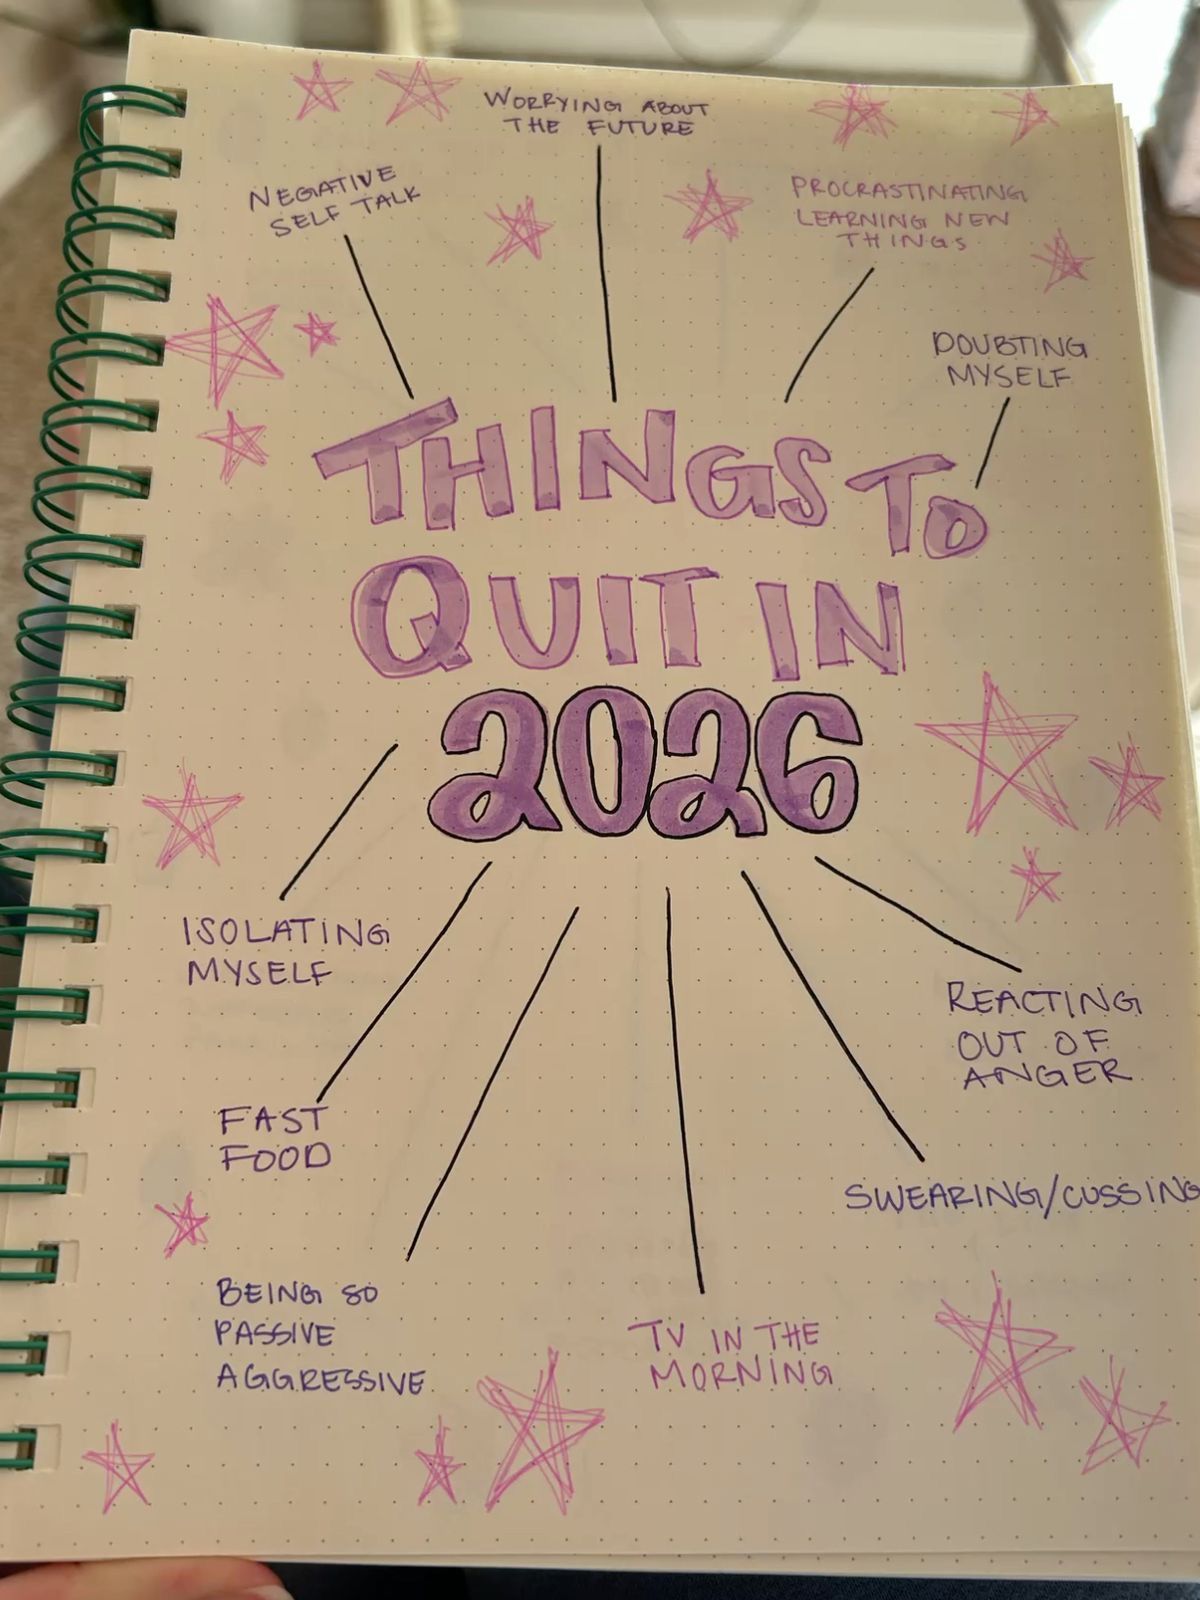 WORRYING ABOUT
THE FUTURE
NEGATIVE
SELF TALK
PROCRASTINATING
LEARNING NEW
THINGS
DOUBTING
MYSELF
THINGS TO
QUIT IN
2026
ISOLATING
MYSELF
REACTING
OUT OF
ANGER
FAST
FOOD
SWEARING/CUSSING
BEING SO
PASSIVE
AGGRESSIVE
TV IN THE
MORNING